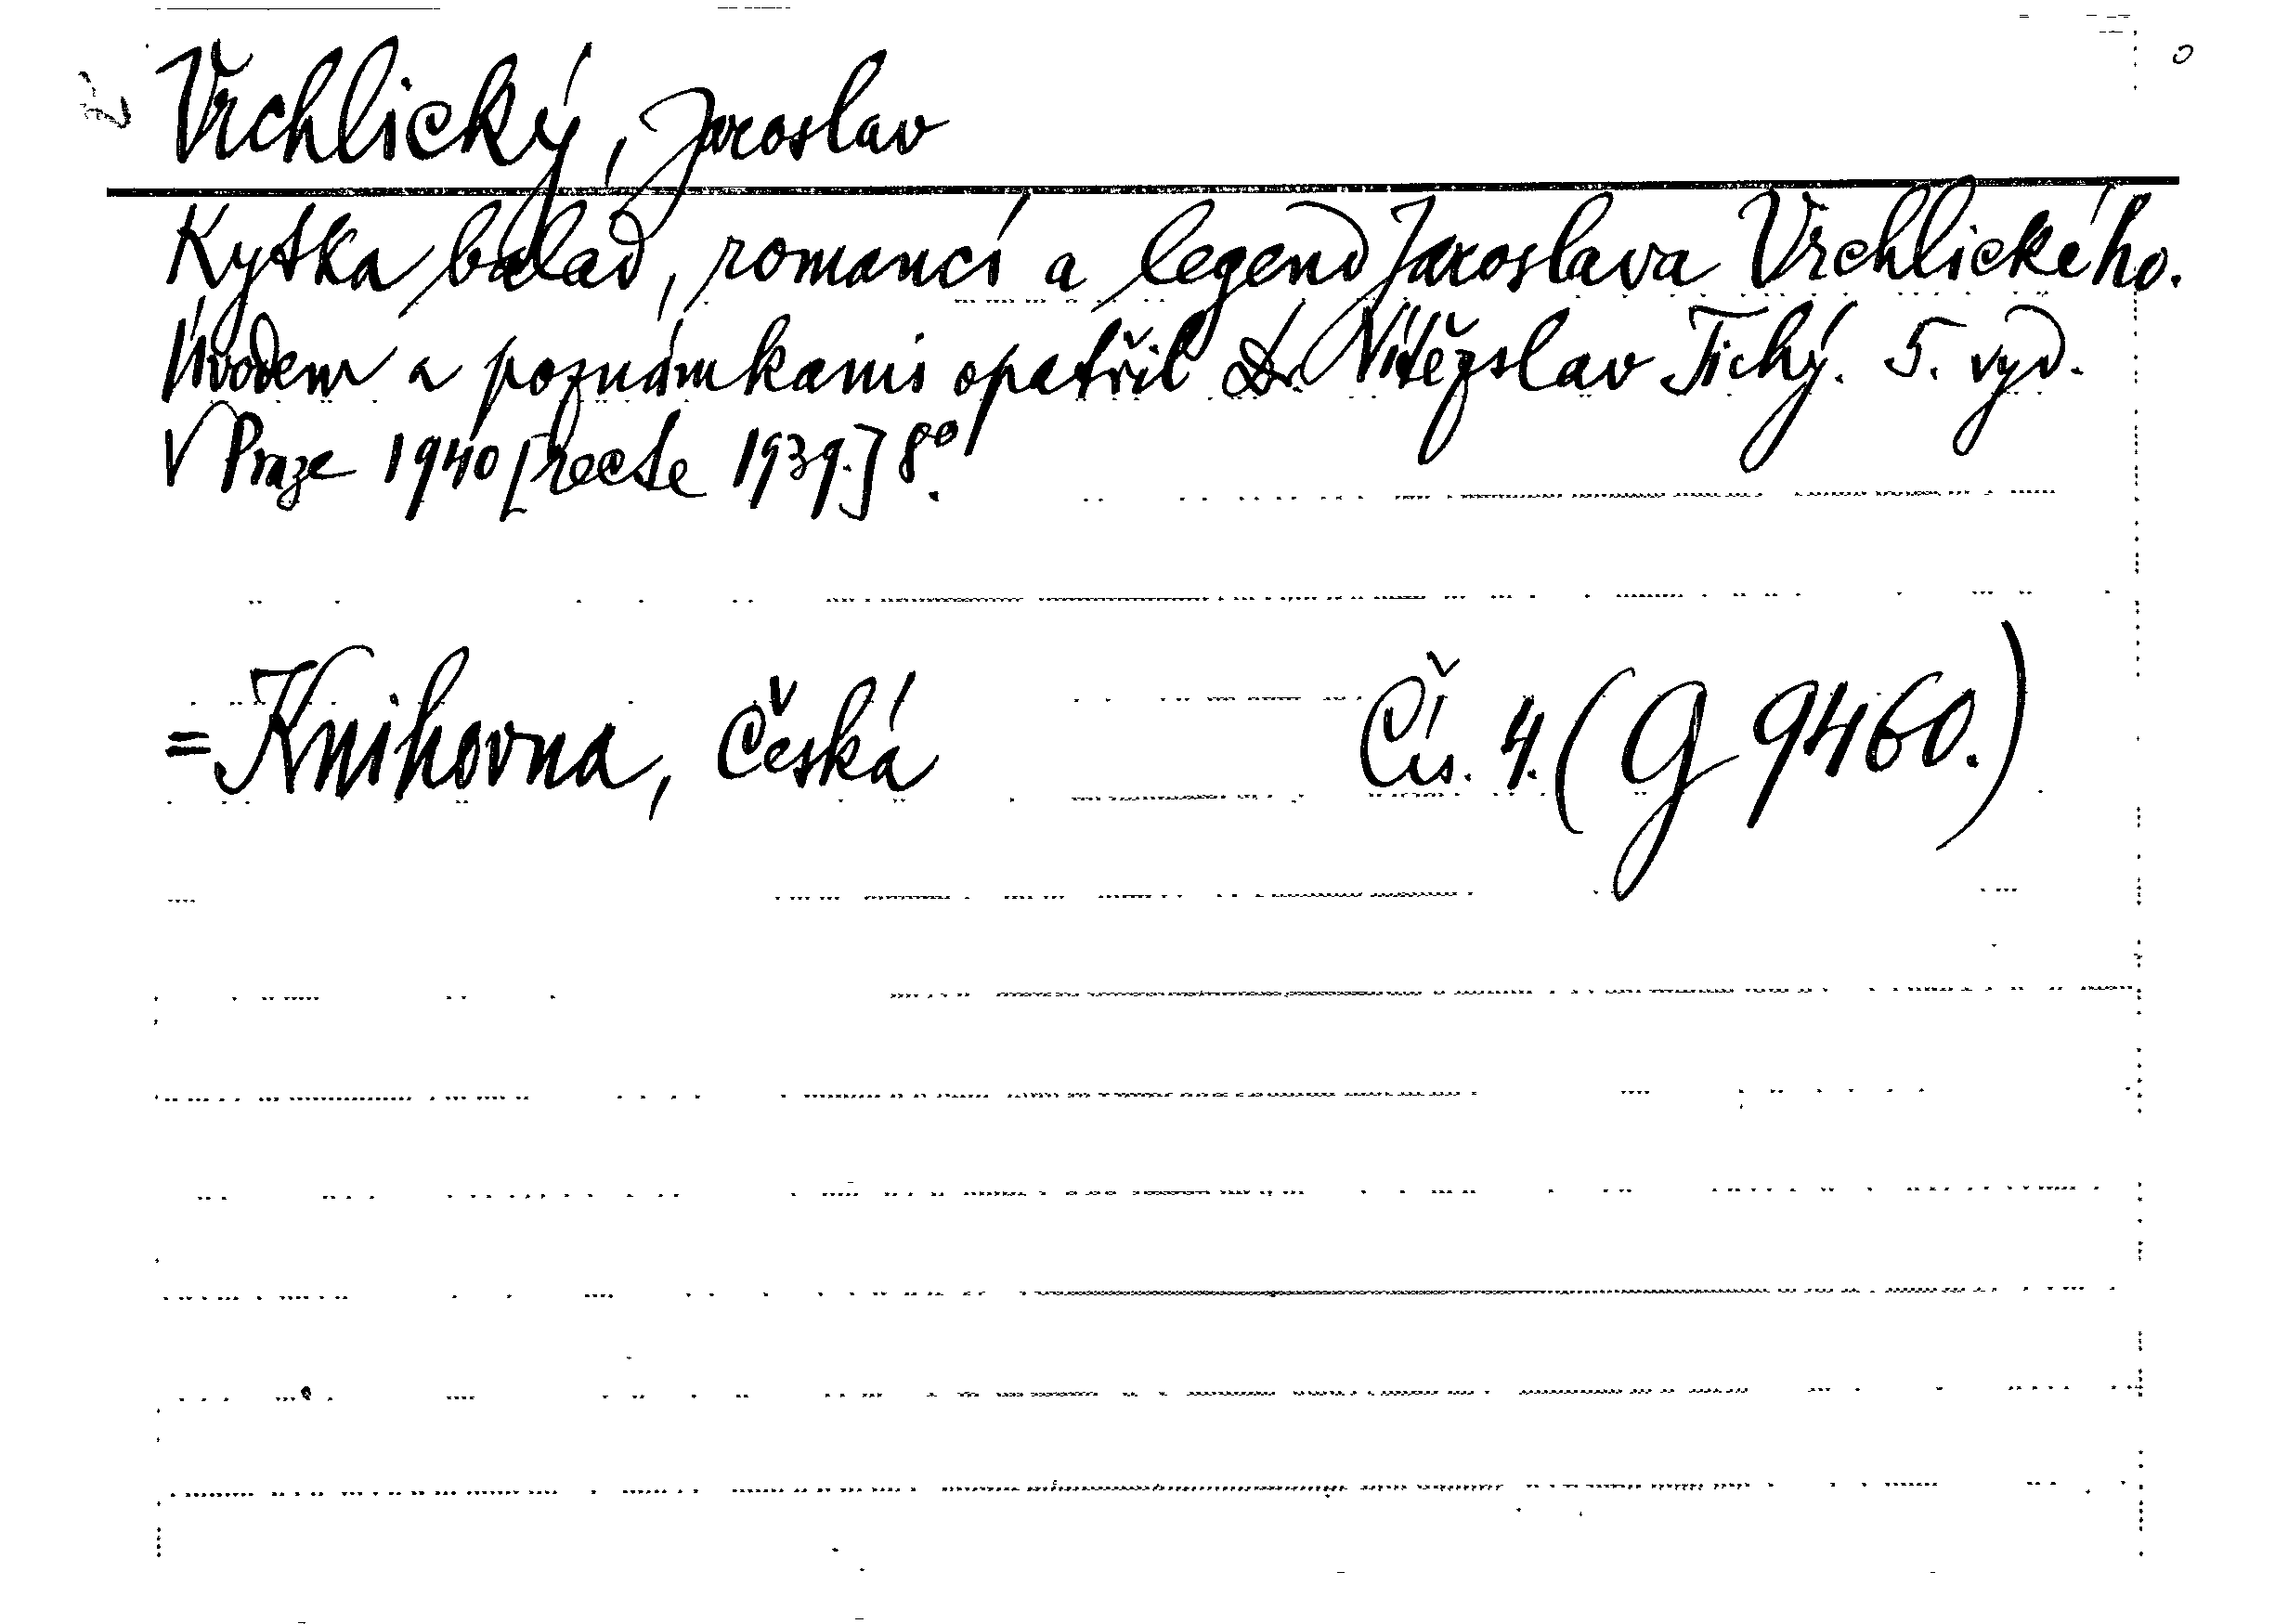 Vrchlický, Jaroslav
Kytka balad, romancí a legend Jaroslava Vrchlického.
Úvodem a poznámkami opatřil Dr. Vítězslav Tichý. 5. vyd.
V Praze 1940 [recte 1939.] 8º.
= Knihovna, Česká Čís. 4. (G 9460.)